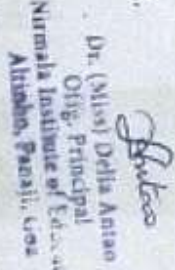 Antao
Dr. (Miss) Delia Antao
Offg. Principal
Nirmala Institute of
Altinho, Panaji, Goa